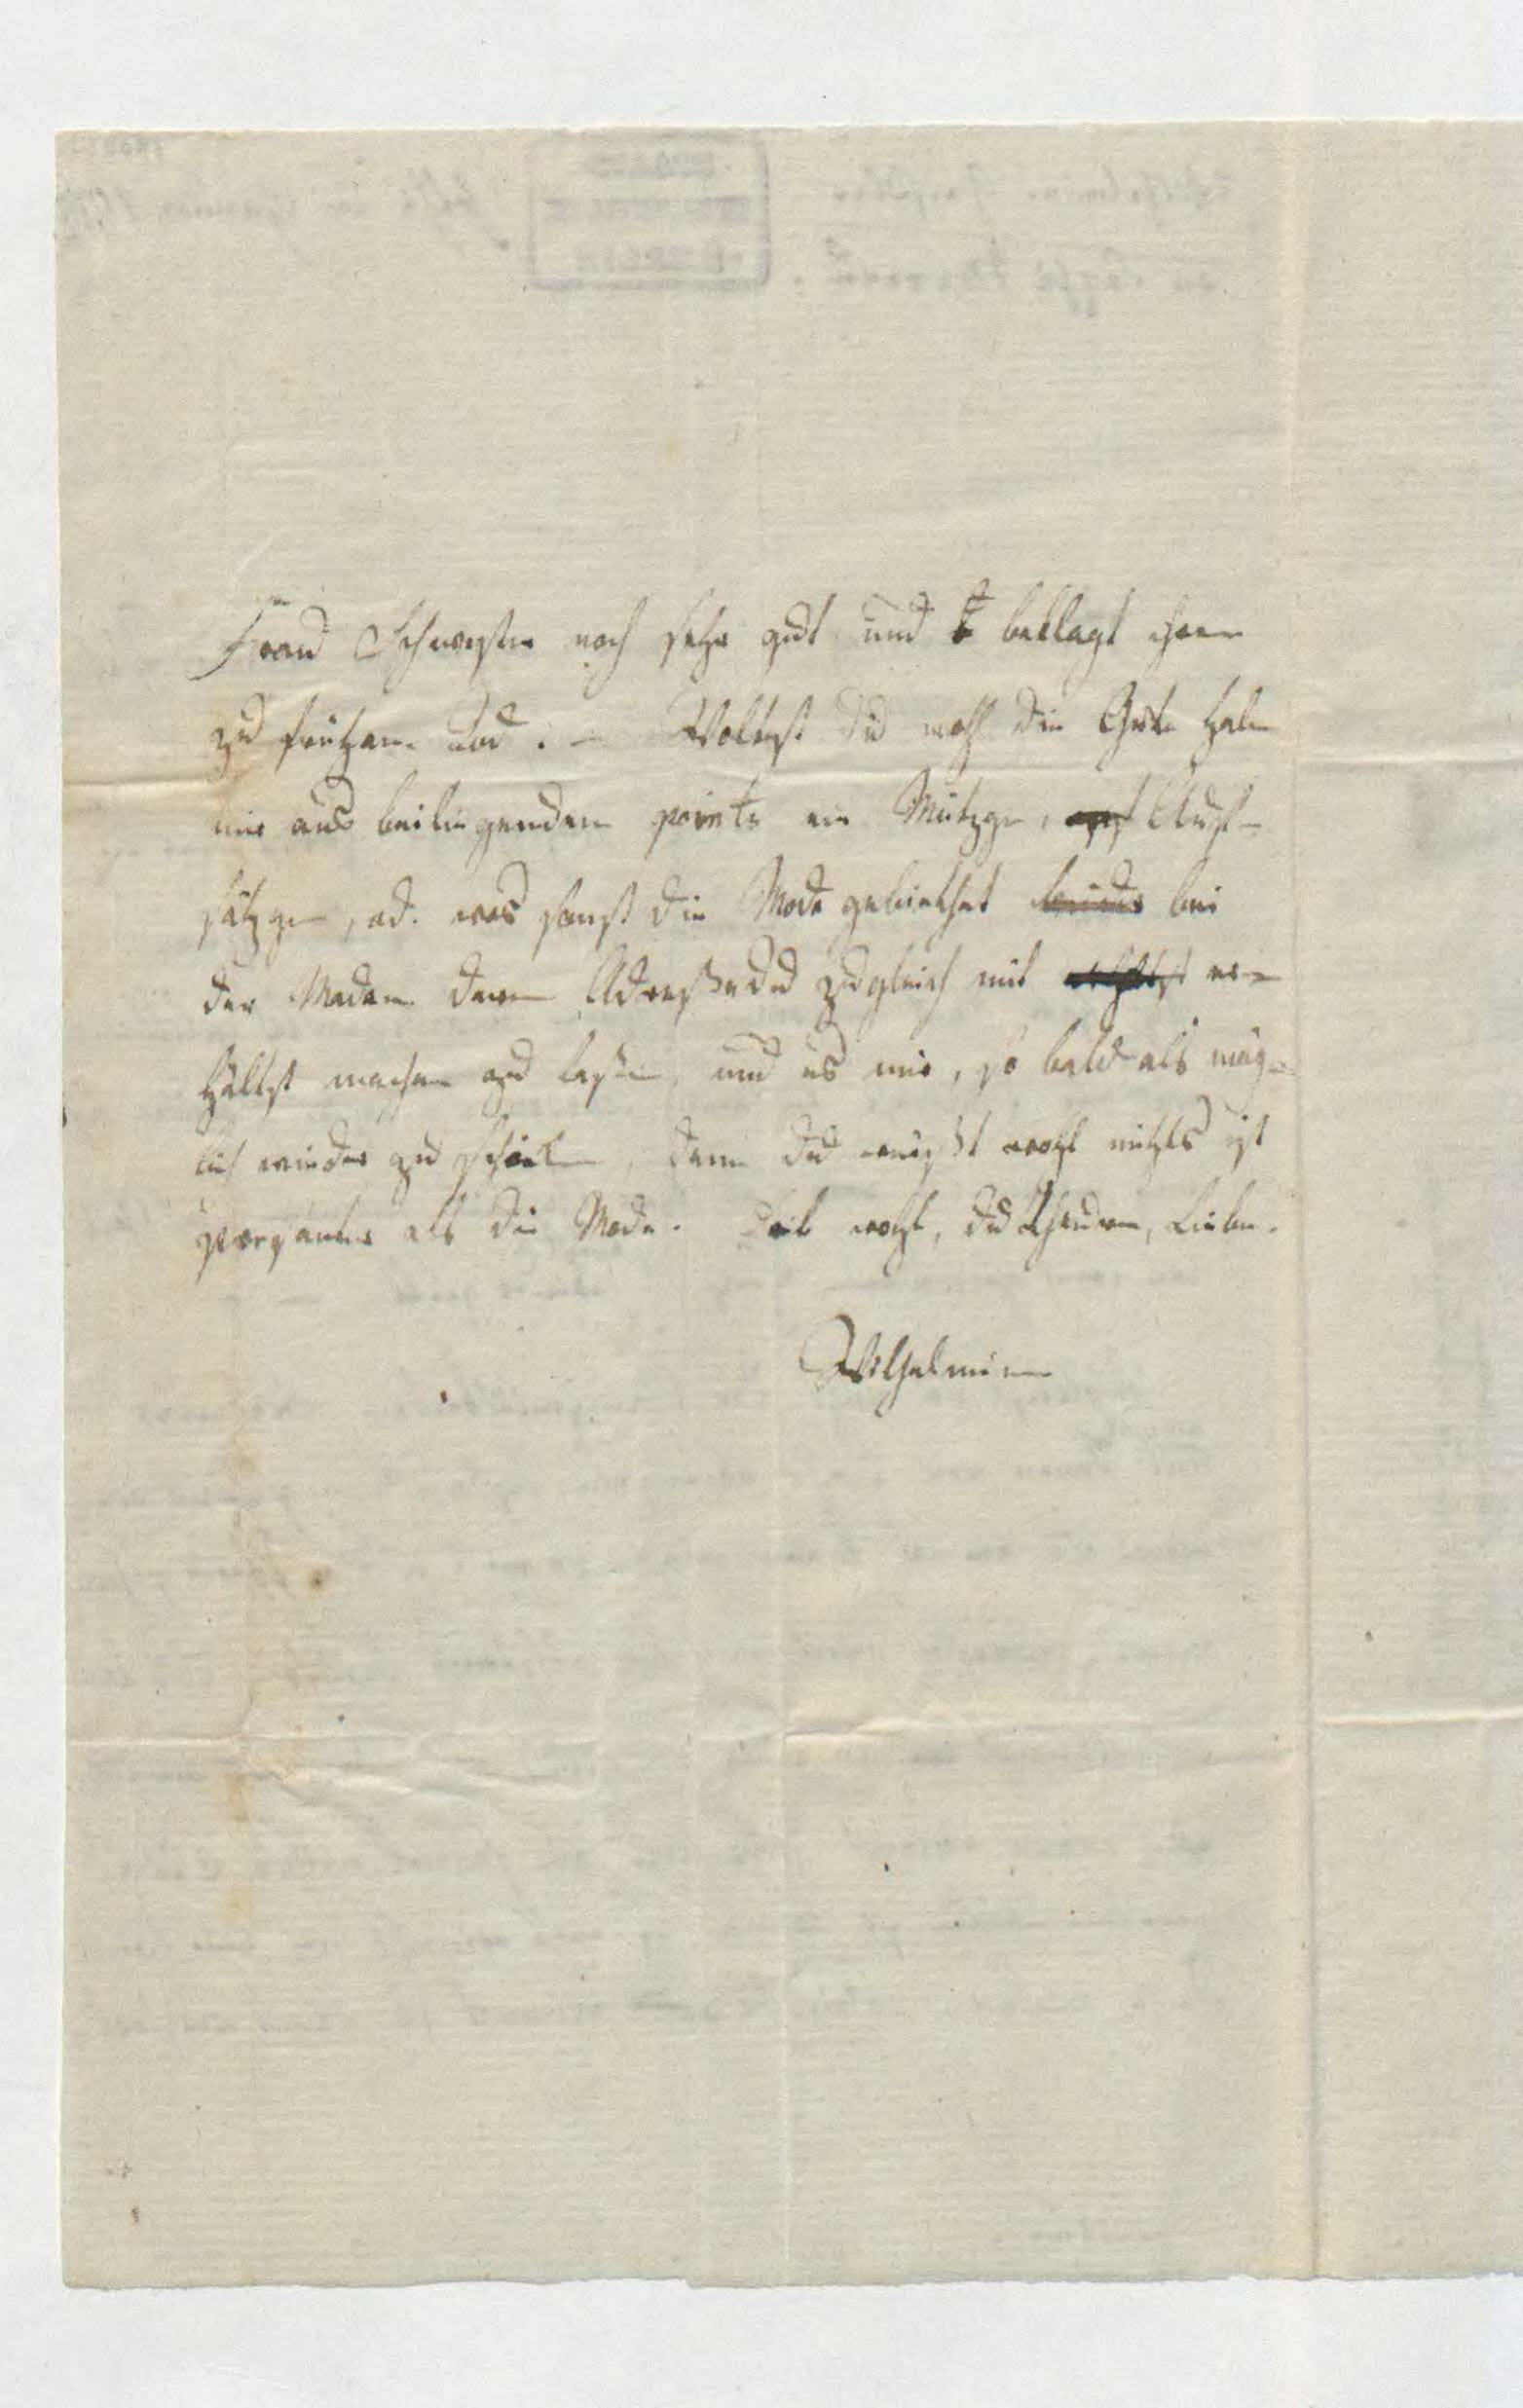 Frau Schwester noch sehr gut und beklagt ihren
zu frühen Tod. – Woltest Du wohl die Güte haben
mir aus beiliegenden points ein Mützgen, Auf-
sätzgen, od. was sonst die Mode gebiethet bei
der Madam deren Adreße du zugleich mit er-
hältst machen zu laßen, und es mir, so bald als mög-
lich wieder zu schicken, denn du weißt wohl nichts ist
als die Mode. Leb wohl, du Theure, Liebe.
Wilhelmine